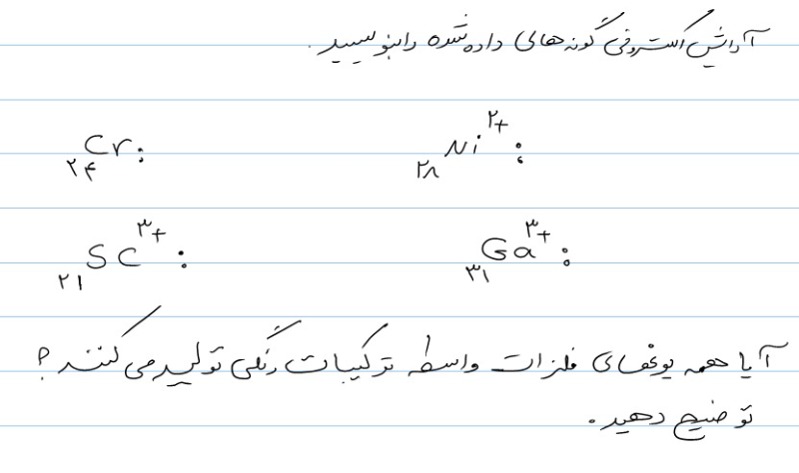 آرایش الکترونی گونه‌های داده شده را بنویسید.
₂₈Ni²⁺: ₂₄Cr:
₃₁Ga³⁺: ₂₁Sc³⁺:
آیا همه یون‌های فلزات واسطه ترکیبات رنگی تولید می‌کنند؟
توضیح دهید.